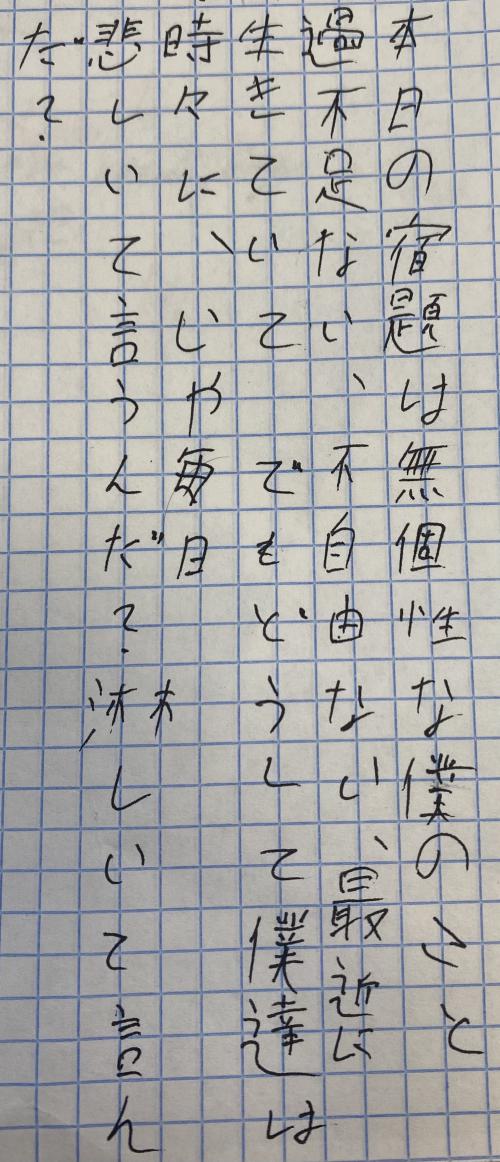 本日の宿題は無個性な僕のこと
過不足ない、不自由なない、最近に
生きていてでもどうして僕達は
時々に、いや毎日
悲しいて言うんだ?淋しいて言ん
だ?